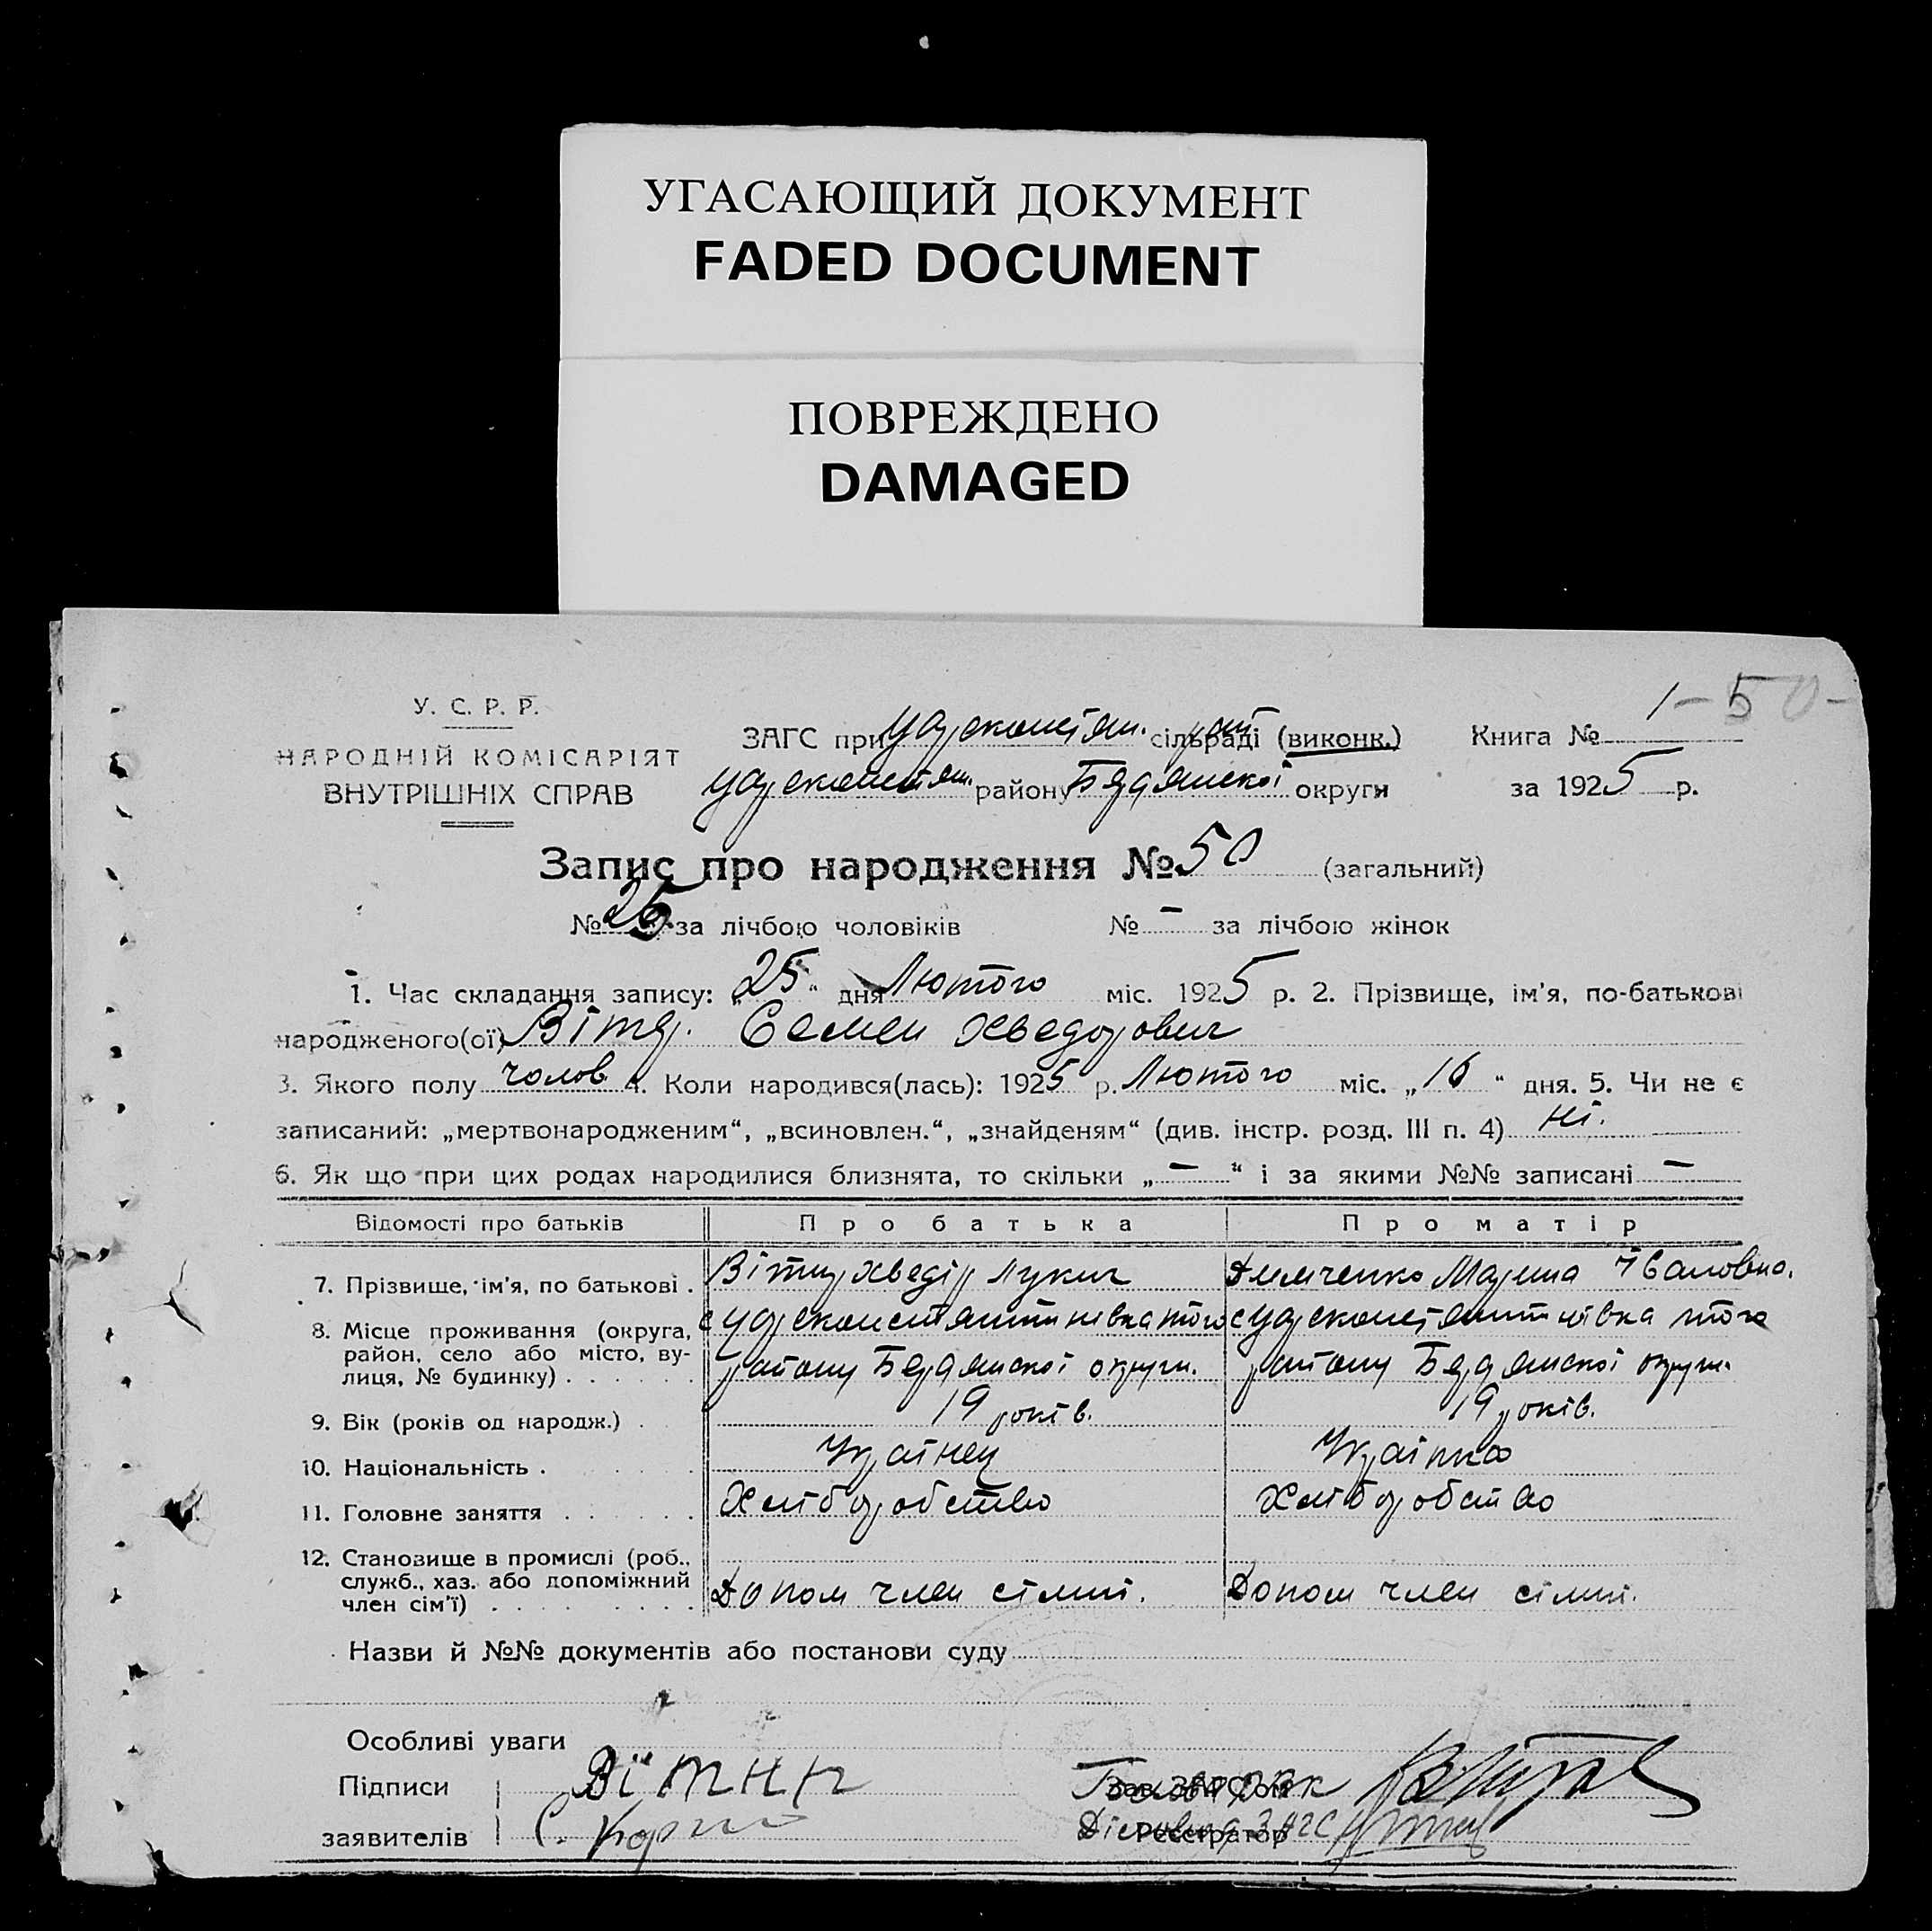 УГАСАЮЩИЙ ДОКУМЕНТ
FADED DOCUMENT
ПОВРЕЖДЕНО
DAMAGED
1-50-
У. С. Р. Р.
НАРОДНІЙ КОМІСАРІЯТ
ВНУТРІШНІХ СПРАВ
ЗАГС при Царекостян. сільраді (виконк.) Книга №
Царекостян. району Бердянської округи за 1925 р.
Запис про народження № 50 (загальний)
№ 25 за лічбою чоловіків № — за лічбою жінок
1. Час складання запису: „25“ дня Лютого міс. 1925 р. 2. Прізвище, ім'я, по-батькові
народженого(ої) Вітер. Семен Хведорович
3. Якого полу чолов 4. Коли народився(лась): 1925 р. Лютого міс. „16“ дня. 5. Чи не є
записаний: „мертвонародженим“, „всиновлен.“, „знайденям“ (див. інстр. розд. III п. 4) ні.
6. Як що при цих родах народилися близнята, то скільки „—“ і за якими №№ записані —
Відомості про батьків Про батька Про матір
7. Прізвище, ім'я, по батькові . Вітер Хведір Лукич Демченко Марина Івановна.
8. Місце проживання (округа, район, село або місто, вулиця, № будинку) . . . . . .
с Цареконстантинівка того с Цареконстантинівка того
району Бердянської округи. району Бердянської округи.
9. Вік (років од народж.) . 19 років. 19 років.
10. Національність . Украінец Украінка
11. Головне заняття . . . . . . Хліборобство Хліборобство
12. Становище в промислі (роб., служб., хаз. або допоміжний член сім'ї) . . . . . . . .
Допом член сімні. Допом член сімні.
Назви й №№ документів або постанови суду
Особливі уваги
Підписи
заявителів
Зав. ЗАГС'ом
Реєстратор